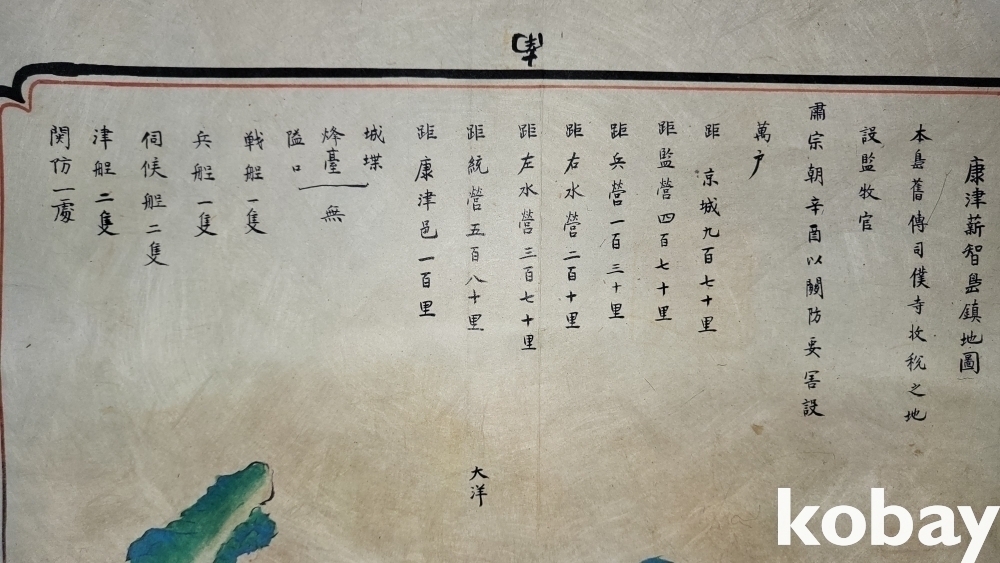 康津薪智島鎭地圖
本島舊傳司僕寺收稅之地
設監牧官
肅宗朝辛酉以關防要害設
萬戶
距京城九百七十里
距監營四百七十里
距兵營一百三十里
距右水營二百十里
距左水營三百七十里
距統營五百八十里
距康津邑一百里
城堞
烽臺
隘口
無
戰船一隻
兵船一隻
伺候船二隻
津船二隻
関防一處
大洋
kobay